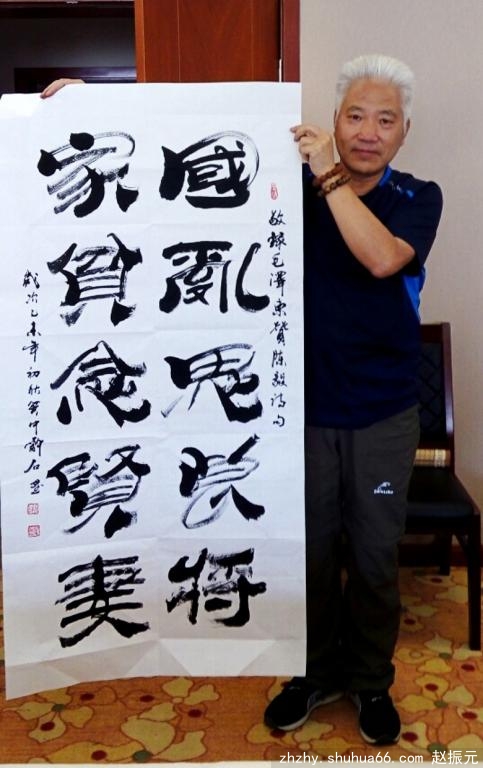 敬錄毛澤東贊陳毅詩句
國亂思良將
家貧念賢妻
歲次乙未年初秋
zhzhy.shuhua66.com 赵振元